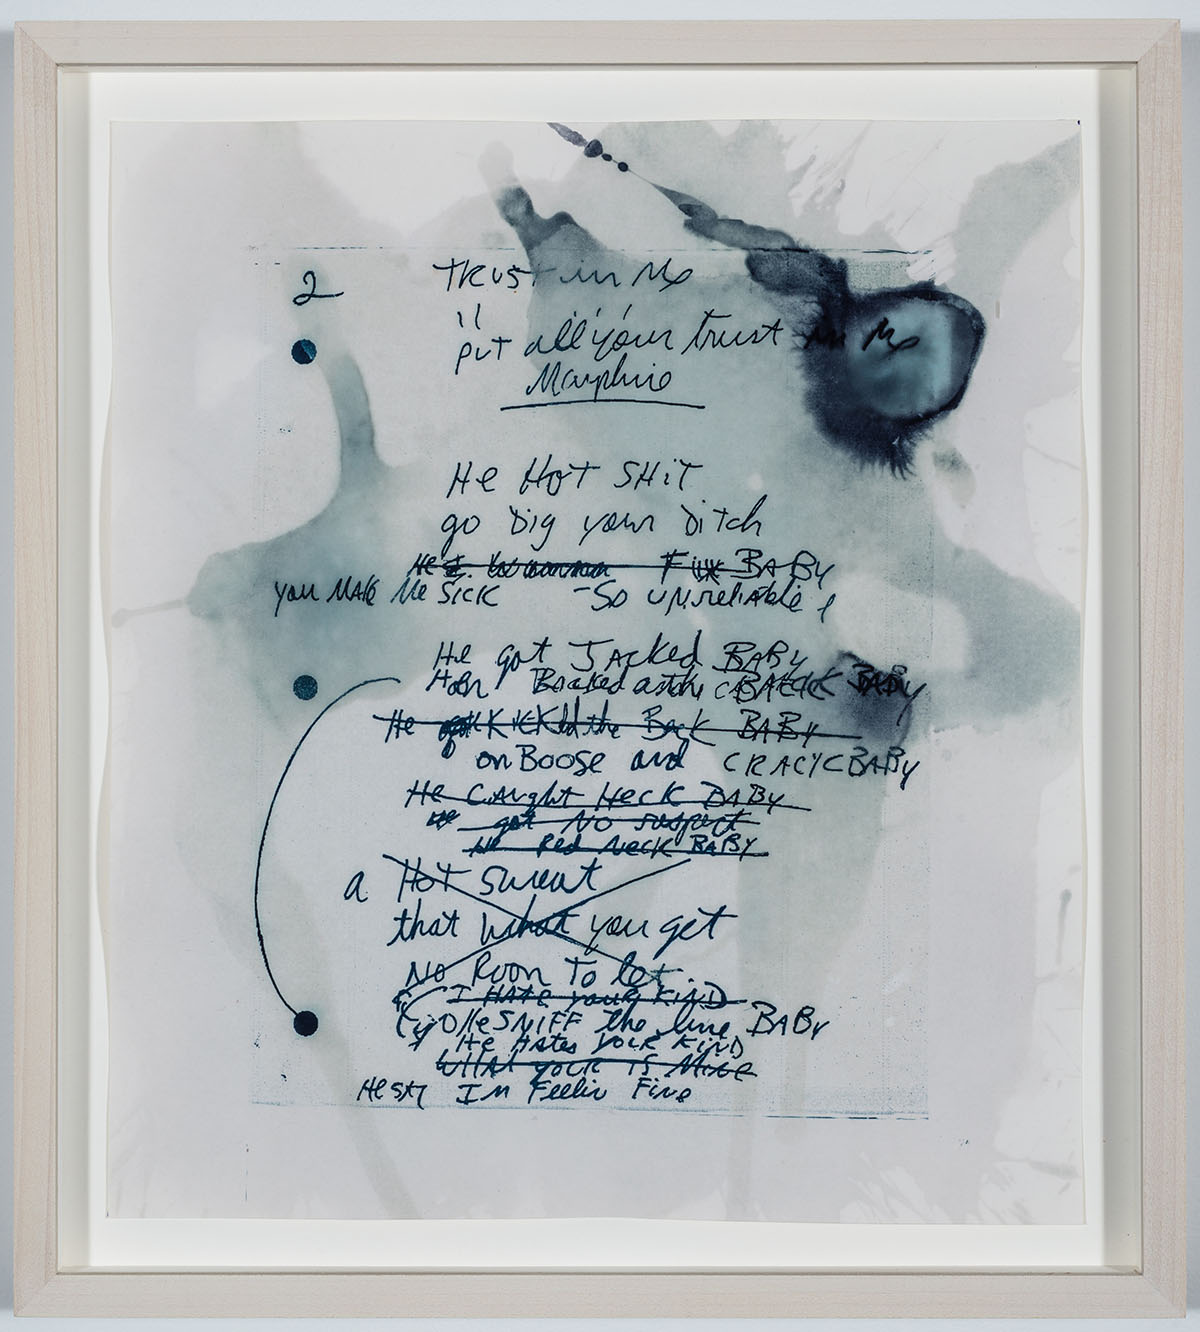 2
Trust in Me
" put all your trust in Me
Morphine
He Hot SHiT
go Dig your Ditch
He I wanna BABY
you MAKE Me SICK -So unreliable
He got Jacked BABY
BABY
He KICKed the Back BABY
on Boose and CRACK BABY
He CAught Heck BABY
He got No respect
He Red Neck BABY
a Hot sweat
that what you get
No Room To let
I HAte your KIND
SNIFF the line BABY
He HAtes your KIND
WHAt your is Mine
He SAy Im Feelin Fine